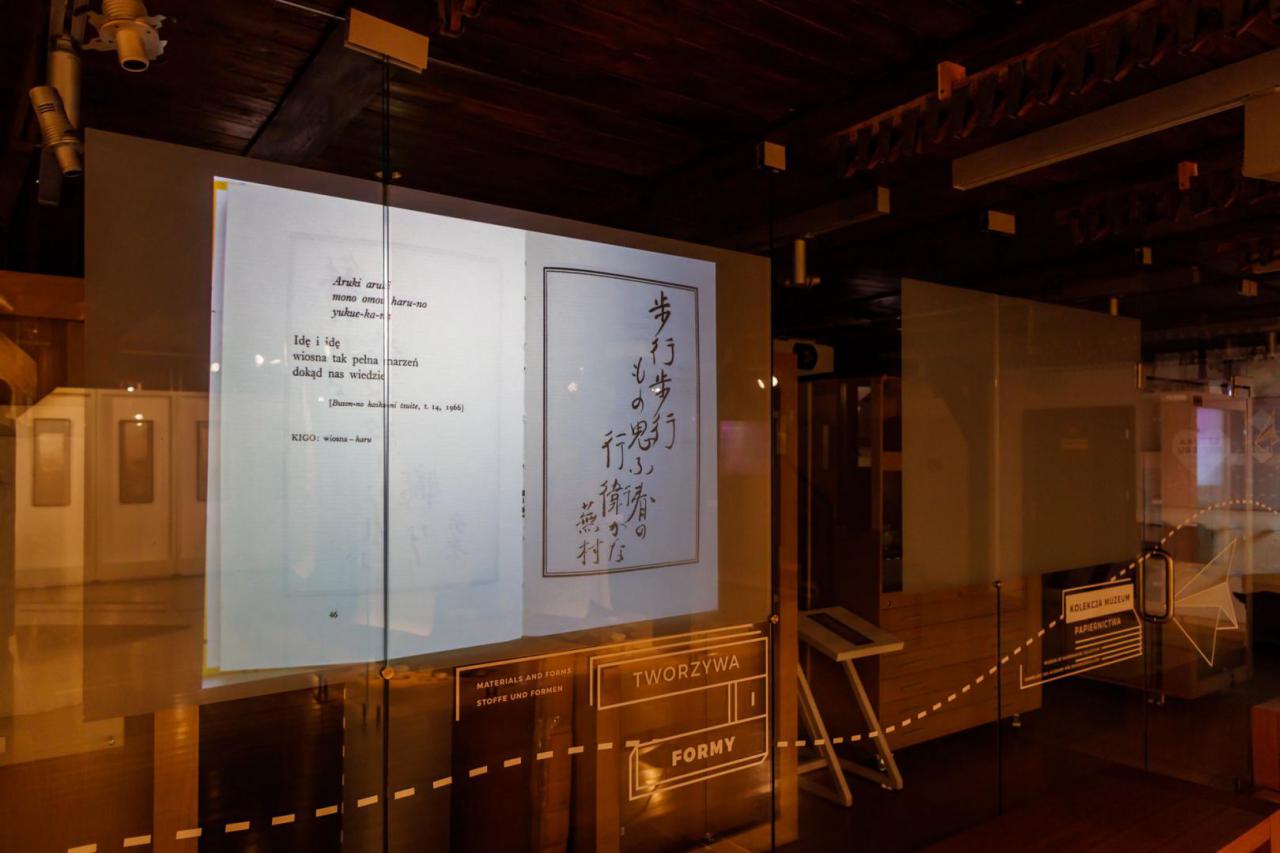 Aruki aruki
mono omou haru-no
yukue-ka-na
Idę i idę
wiosna tak pełna marzeń
dokąd nas wiedzie
[Buson-no haiku-ni tsuite, t. 14, 1966]
KIGO: wiosna – haru
46
歩行歩行
もの思ふ春の
行衛かな
蕪村
MATERIALS AND FORMS
STOFFE UND FORMEN
TWORZYWA
I
FORMY
KOLEKCJA MUZEUM
PAPIERNICTWA